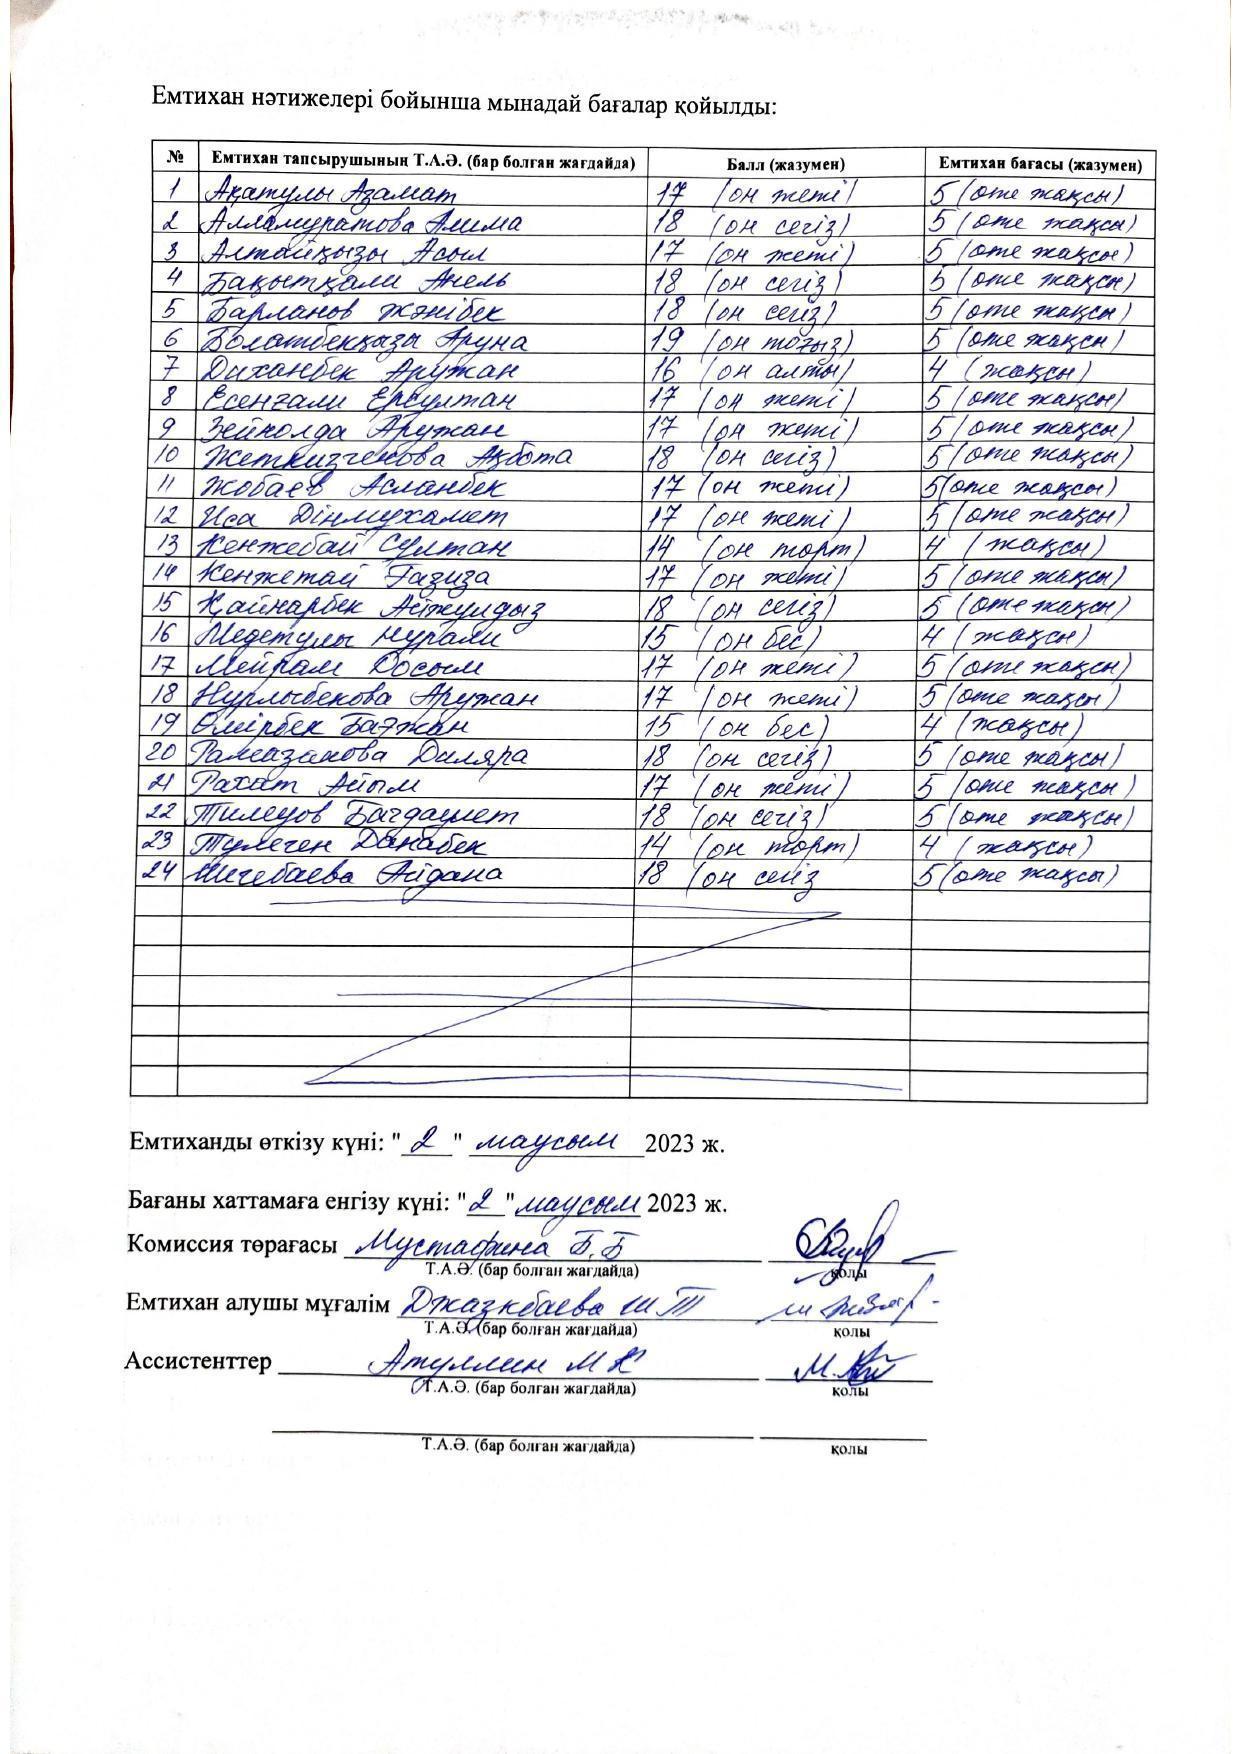 Емтихан нәтижелері бойынша мынадай бағалар қойылды:
№ Емтихан тапсырушының Т.А.Ә. (бар болған жағдайда) Балл (жазумен) Емтихан бағасы (жазумен)
1 Ақатулы Азамат 17 (он жеті) 5 (өте жақсы)
2 Алламуратова Алима 18 (он сегіз) 5 (өте жақсы)
3 Алтайқызы Асыл 17 (он жеті) 5 (өте жақсы)
4 Бақытқали Анель 18 (он сегіз) 5 (өте жақсы)
5 Барланов Жәнібек 18 (он сегіз) 5 (өте жақсы)
6 Болатбекқызы Аруна 19 (он тоғыз) 5 (өте жақсы)
7 Диханбек Аружан 16 (он алты) 4 (жақсы)
8 Есенғали Ерсултан 17 (он жеті) 5 (өте жақсы)
9 Зейнолда Аружан 17 (он жеті) 5 (өте жақсы)
10 Жеткизгенова Ақбота 18 (он сегіз) 5 (өте жақсы)
11 Жобаев Асланбек 17 (он жеті) 5 (өте жақсы)
12 Иса Дінмухамет 17 (он жеті) 5 (өте жақсы)
13 Кенжебай Султан 14 (он төрт) 4 (жақсы)
14 Кенжетай Ғазиза 17 (он жеті) 5 (өте жақсы)
15 Қайнарбек Айжулдыз 18 (он сегіз) 5 (өте жақсы)
16 Медетулы Нурали 15 (он бес) 4 (жақсы)
17 Мейрам Досым 17 (он жеті) 5 (өте жақсы)
18 Нурлыбекова Аружан 17 (он жеті) 5 (өте жақсы)
19 Өмірбек Бағжан 15 (он бес) 4 (жақсы)
20 Рамазанова Диляра 18 (он сегіз) 5 (өте жақсы)
21 Рахат Айым 17 (он жеті) 5 (өте жақсы)
22 Тилеуов Бағдаулет 18 (он сегіз) 5 (өте жақсы)
23 Тулеген Данабек 14 (он төрт) 4 (жақсы)
24 Шегебаева Айдана 18 (он сегіз 5 (өте жақсы)
Емтиханды өткізу күні: "2" маусым 2023 ж.
Бағаны хаттамаға енгізу күні: "2" маусым 2023 ж.
Комиссия төрағасы Мустафина Б.Б
Т.А.Ә. (бар болған жағдайда) қолы
Емтихан алушы мұғалім Джазкбаева Ш Т
Т.А.Ә. (бар болған жағдайда) қолы
Ассистенттер Атуллин М К
Т.А.Ә. (бар болған жағдайда) қолы
Т.А.Ә. (бар болған жағдайда) қолы